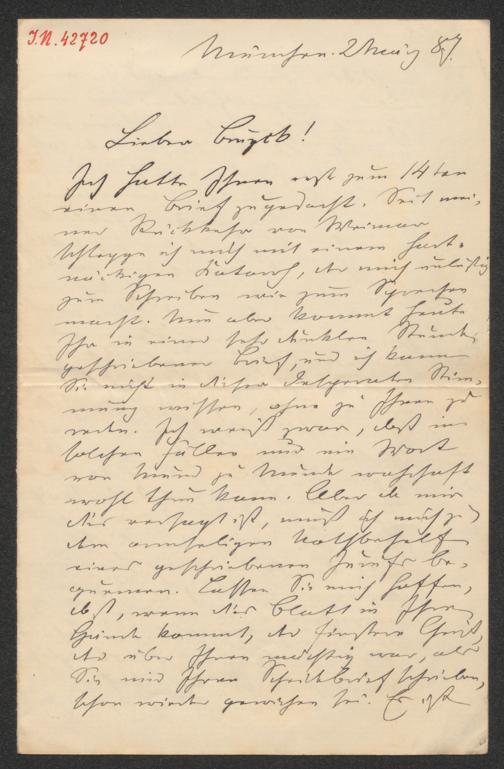 I.N. 42720
München. 2 März 87.
Lieber
Ich hatte Ihnen erst zum 14ten
einen Brief zugedacht. Seit mei-
ner Rückkehr von Weimar
schleppe ich mich mit einem hart-
näckigen Katarrh, der mich unlustig
zum Schreiben wie zum Sprechen
macht. Nun aber kommt heute
Ihr in einer sehr dunklen Stunde
geschriebener Brief, und ich kann
Sie nicht in dieser desperaten Stim-
mung wissen, ohne zu Ihnen zu
reden. Ich weiß zwar, daß in
solchen Fällen nur ein Wort
von Mund zu Munde wahrhaft
wohl thun kann. Aber da mir
dies versagt ist, muß ich mich zu
dem armseligen Nothbehelf
eines geschriebenen Zurufs be-
quemen. Lassen Sie mich hoffen,
daß, wenn dies Blatt in Ihre
Hände kommt, der finstere Geist,
der über Ihnen mächtig war, als
Sie mir Ihren schrieben,
schon wieder gewichen sei. Es ist